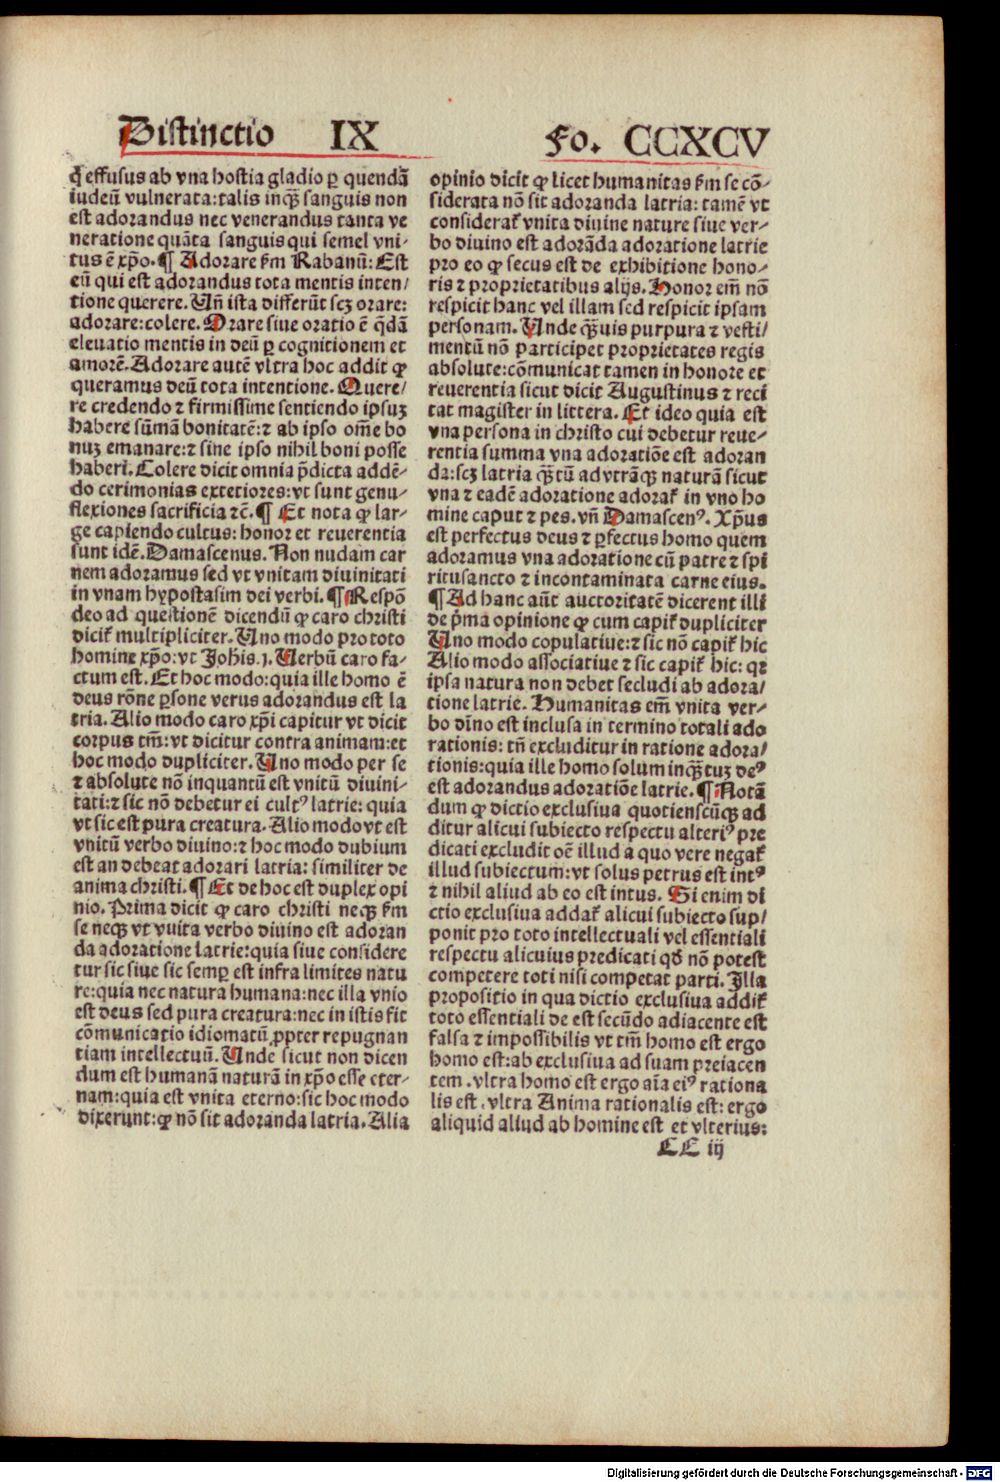 Distinctio IX Fo. CCXCV
q̇ effusus ab vna hostia gladio ꝑ quendã
iudeũ vulnerata: talis inqꝫ̃ sanguis non
est adorandus nec venerandus tanta ve
neratione quãta sanguis qui semel vni⸗
tus ẽ xp̃o. ¶ Adorare ẜm Rabanũ: Est
eũ qui est adorandus tota mentis inten/
tione querere. Uñ ista differũt scꝫ orare:
adorare: colere. Orare siue oratio ẽ q̃dã
eleuatio mentis in deũ ꝑ cognitionem et
amorẽ. Adorare autẽ vltra hoc addit ꝙ
queramus deũ tota intentione. Quere/
re credendo ⁊ firmissime sentiendo ipsuꝫ
habere sũmã bonitatẽ: ⁊ ab ipso om̃e bo
nuꝫ emanare: ⁊ sine ipso nihil boni posse
haberi. Colere dicit omnia p̃dicta addẽ⸗
do cerimonias exteriores: vt sunt genu⸗
flexiones sacrificia ⁊c̃. ¶ Et nota ꝙ lar⸗
ge capiendo cultus: honor et reuerentia
sunt idẽ. Damascenus. Non nudam car
nem adoramus sed vt vnitam diuinitati
in vnam hypostasim dei verbi. ¶ Respõ
deo ad questionẽ dicendũ ꝙ caro christi
dicit᷑ multipliciter. Uno modo pro toto
homine xp̃o: vt Joh̃is .j. Uerbũ caro fa⸗
ctum est. Et hoc modo: quia ille homo ẽ
deus rõne ꝑsone verus adorandus est la
tria. Alio modo caro xp̃i capitur vt dicit
corpus tm̃: vt dicitur contra animam: et
hoc modo dupliciter. Uno modo per se
⁊ absolute nõ inquantũ est vnitũ diuini⸗
tati: ⁊ sic nõ debetur ei cultꝰ latrie: quia
vt sic est pura creatura. Alio modo vt est
vnitũ verbo diuino: ⁊ hoc modo dubium
est an debeat adorari latria: similiter de
anima christi. ¶ Et de hoc est duplex opi
nio. Prima dicit ꝙ caro christi neqꝫ ẜm
se neqꝫ vt vnita verbo diuino est adoran
da adoratione latrie: quia siue considere
tur sic siue sic semꝑ est infra limites natu
re: quia nec natura humana: nec illa vnio
est deus sed pura creatura: nec in istis fit
cõmunicatio idiomatũ ꝓpter repugnan
tiam intellectuũ. Unde sicut non dicen
dum est humanã naturã in xp̃o esse eter⸗
nam: quia est vnita eterno: sic hoc modo
dixerunt: ꝙ nõ sit adoranda latria. Alia
opinio dicit ꝙ licet humanitas ẜm se cõ⸗
siderata nõ sit adoranda latria: tamẽ vt
considerat᷑ vnita diuine nature siue ver⸗
bo diuino est adorãda adoratione latrie
pro eo ꝙ secus est de exhibitione hono⸗
ris ⁊ proprietatibus alijs. Honor em̃ nõ
respicit hanc vel illam sed respicit ipsam
personam. Unde qꝫ̃uis purpura ⁊ vesti/
mentũ nõ participet proprietates regis
absolute: cõmunicat tamen in honore et
reuerentia sicut dicit Augustinus ⁊ reci
tat magister in littera. Et ideo quia est
vna persona in christo cui debetur reue⸗
rentia summa vna adoratiõe est adoran
da: scꝫ latria qꝫ̃tũ ad vtrãqꝫ naturã sicut
vna ⁊ eadẽ adoratione adorat᷑ in vno ho
mine caput ⁊ pes. vñ Damascenꝰ. Xp̃us
est perfectus deus ⁊ ꝑfectus homo quem
adoramus vna adoratione cũ patre ⁊ spi
ritusancto ⁊ incontaminata carne eius.
¶ Ad hanc aũt auctoritatẽ dicerent illi
de p̃ma opinione ꝙ cum capit᷑ dupliciter
Uno modo copulatiue: ⁊ sic nõ capit᷑ hic
Alio modo associatiue ⁊ sic capit᷑ hic: qꝛ
ipsa natura non debet secludi ab adora/
tione latrie. Humanitas em̃ vnita ver⸗
bo dĩno est inclusa in termino totali ado
rationis: tñ excluditur in ratione adora/
tionis: quia ille homo solum inqꝫ̃tuꝫ deꝰ
est adorandus adoratiõe latrie. ¶ Notã
dum ꝙ dictio exclusiua quotienscũqꝫ ad
ditur alicui subiecto respectu alteriꝰ pre
dicati excludit oẽ illud a quo vere negat᷑
illud subiectum: vt solus petrus est intꝰ
⁊ nihil aliud ab eo est intus. Si enim di
ctio exclusiua addat᷑ alicui subiecto sup/
ponit pro toto intellectuali vel essentiali
respectu alicuius predicati qđ nõ potest
competere toti nisi competat parti. Illa
propositio in qua dictio exclusiua addit᷑
toto essentiali de est secũdo adiacente est
falsa ⁊ impossibilis vt tm̃ homo est ergo
homo est: ab exclusiua ad suam preiacen
tem. vltra homo est ergo aĩa eiꝰ rationa
lis est. vltra Anima rationalis est: ergo
aliquid aliud ab homine est et vlterius:
CC iij
Digitalisierung gefördert durch die Deutsche Forschungsgemeinschaft - DFG